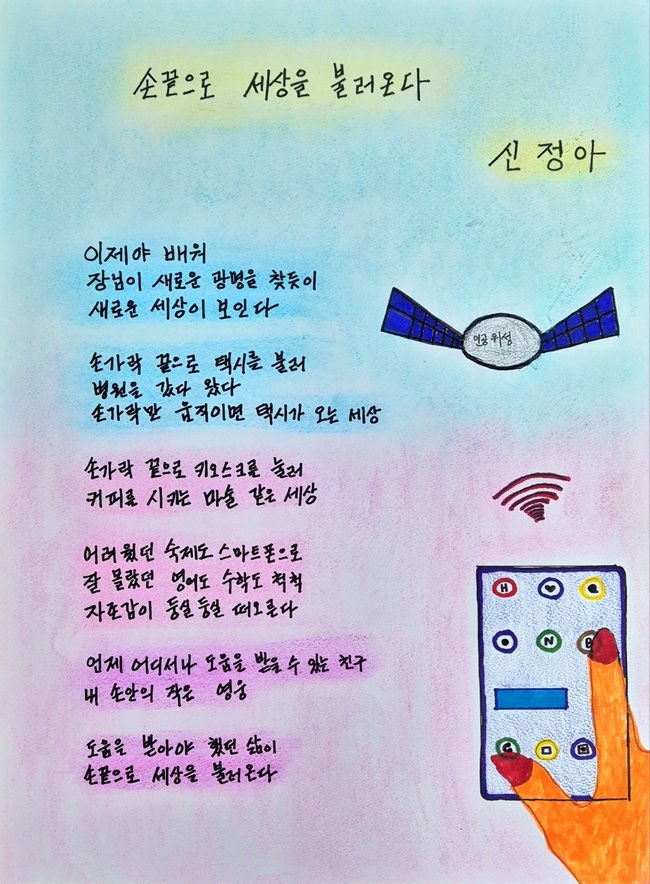 손끝으로 세상을 불러온다
신정아
이제야 배워
장님이 새로운 광명을 찾듯이
새로운 세상이 보인다
손가락 끝으로 택시를 불러
병원을 갔다 왔다
손가락만 움직이면 택시가 오는 세상
손가락 끝으로 키오스크를 눌러
커피를 시키는 마술 같은 세상
어려웠던 숙제도 스마트폰으로
잘 몰랐던 영어도 수학도 척척
자존감이 둥실 둥실 떠오른다
언제 어디서나 도움을 받을 수 있는 친구
내 손안의 작은 영웅
도움을 받아야 했던 삶이
손끝으로 세상을 불러온다
인공위성
H
N